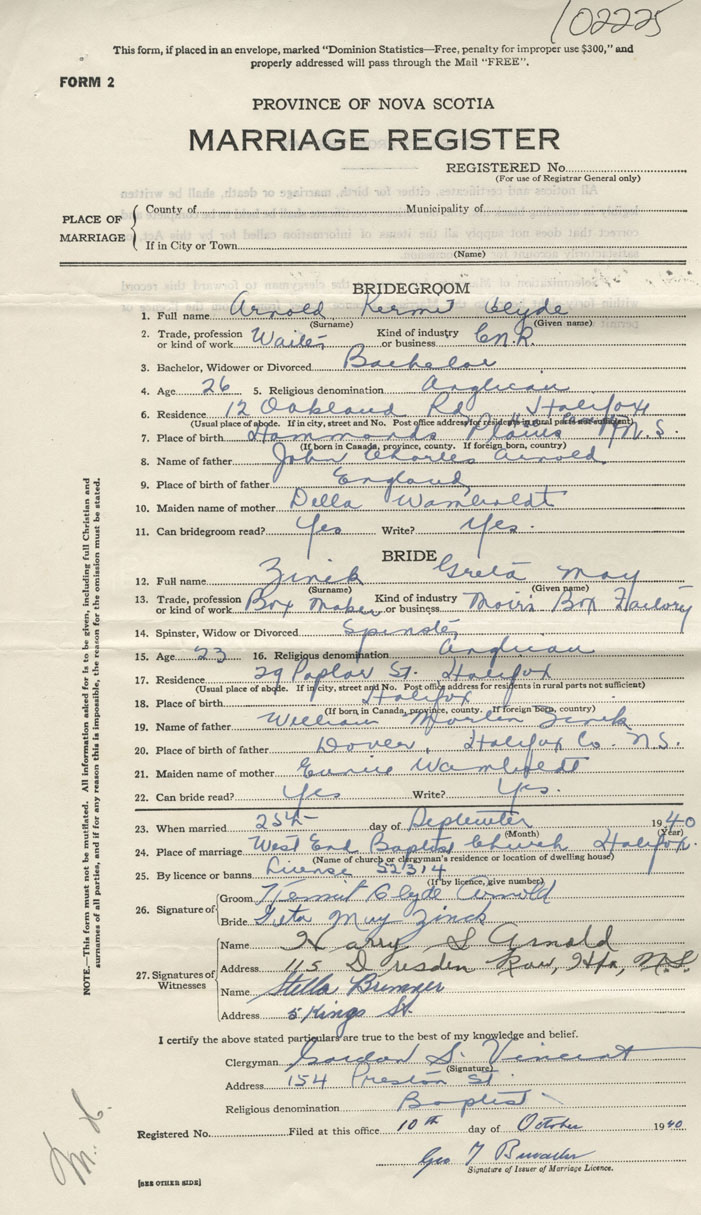 102225
This form, if placed in an envelope, marked "Dominion Statistics—Free, penalty for improper use $300," and
properly addressed will pass through the Mail "FREE".
FORM 2
PROVINCE OF NOVA SCOTIA
MARRIAGE REGISTER
REGISTERED No.
(For use of Registrar General only)
PLACE OF MARRIAGE
County of Municipality of
If in City or Town
(Name)
BRIDEGROOM
1. Full name Arnold Kermit Clyde
(Surname) (Given name)
2. Trade, profession or kind of work Waiter Kind of industry or business C.N.R.
3. Bachelor, Widower or Divorced Bachelor
4. Age 26 5. Religious denomination Anglican
6. Residence 12 Oakland Rd Halifax
(Usual place of abode. If in city, street and No. Post office address for residents in rural parts not sufficient)
7. Place of birth Hammonds Plains N.S.
(If born in Canada, province, county. If foreign born, country)
8. Name of father John Charles Arnold
9. Place of birth of father England
10. Maiden name of mother Della Wamboldt
11. Can bridegroom read? Yes Write? Yes.
BRIDE
12. Full name Zinck Greta May
(Surname) (Given name)
13. Trade, profession or kind of work Box Maker Kind of industry or business Moirs Box Factory
14. Spinster, Widow or Divorced Spinster
15. Age 23 16. Religious denomination Anglican
17. Residence 29 Poplar St. Halifax
(Usual place of abode. If in city, street and No. Post office address for residents in rural parts not sufficient)
18. Place of birth Halifax
(If born in Canada, province, county. If foreign born, country)
19. Name of father William Martin Zinck
20. Place of birth of father Dover, Halifax Co. N.S.
21. Maiden name of mother Eunice Wamboldt
22. Can bride read? Yes Write? Yes.
23. When married 25th day of September 1940
(Month) (Year)
24. Place of marriage West End Baptist Church Halifax.
(Name of church or clergyman's residence or location of dwelling house)
25. By licence or banns License 52314
(If by licence, give number)
26. Signature of
Groom Kermit Clyde Arnold
Bride Greta May Zinck
27. Signatures of Witnesses
Name Harry S Arnold
Address 115 Dresden Row, Hfx, N.S.
Name Stella Bremner
Address 5 Kings St.
I certify the above stated particulars are true to the best of my knowledge and belief.
Clergyman Gordon S. Vincent
(Signature)
Address 154 Preston St.
Religious denomination Baptist
Registered No. Filed at this office 10th day of October 1940
Geo T
Signature of Issuer of Marriage Licence.
[SEE OTHER SIDE]
NOTE.—This form must not be mutilated. All information asked for is to be given, including full Christian and
surnames of all parties, and if for any reason this is impossible, the reason for the omission must be stated.